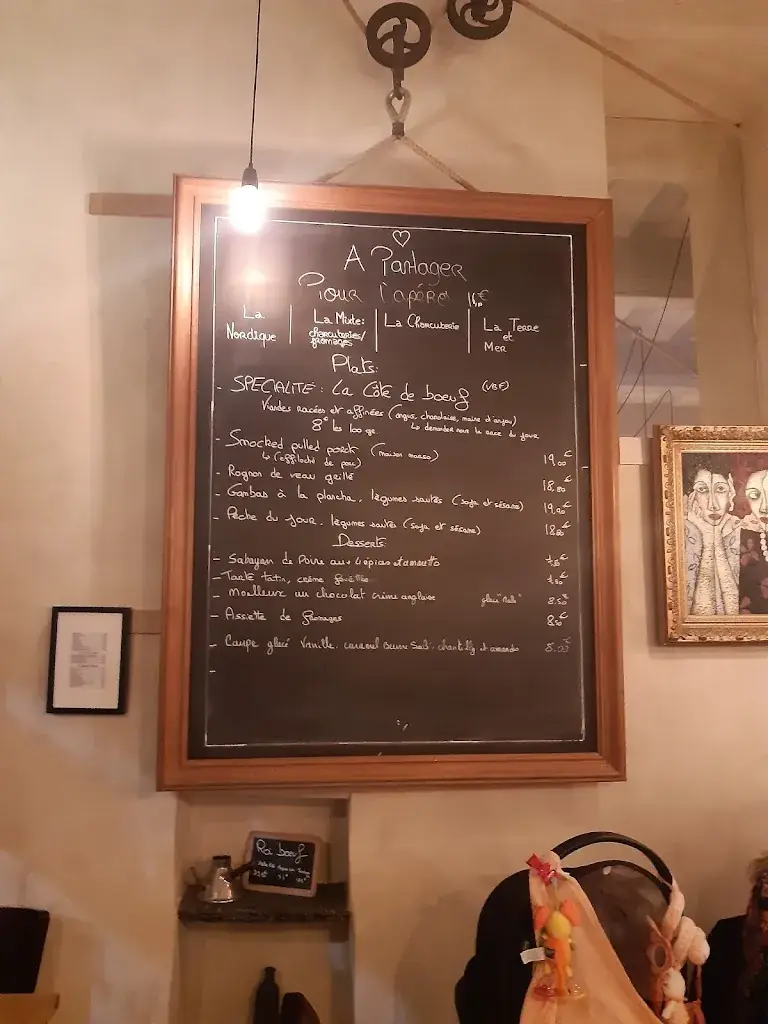 A Partager
Pour l'apéro
La Nordique
La Mixte: charcuteries/ fromages
La Charcuterie
La Terre et Mer
Plats:
- SPECIALITE: La Côte de boeuf (VBF)
Viandes racées et affinées (angus, charolaise, maine d'anjou)
8€ les 100 gr ↳ demander nous la race du jour
- Smocked pulled porck (maison maso) 19,00€
↳ (effiloché de porc)
- Rognon de veau grillé 18,80€
- Gambas à la plancha, légumes sautés (soja et sésame) 19,90€
- Pêche du jour, légumes sautés (soja et sésame)
Desserts:
- Sabayon de Poire aux épices et amaretto
- Tarte tatin, crème
- Moelleux au chocolat crème anglaise 8.50€
- Assiette de fromages
- Coupe glacé Vanille, caramel beurre Salé, chantilly et amande
Roi boeuf